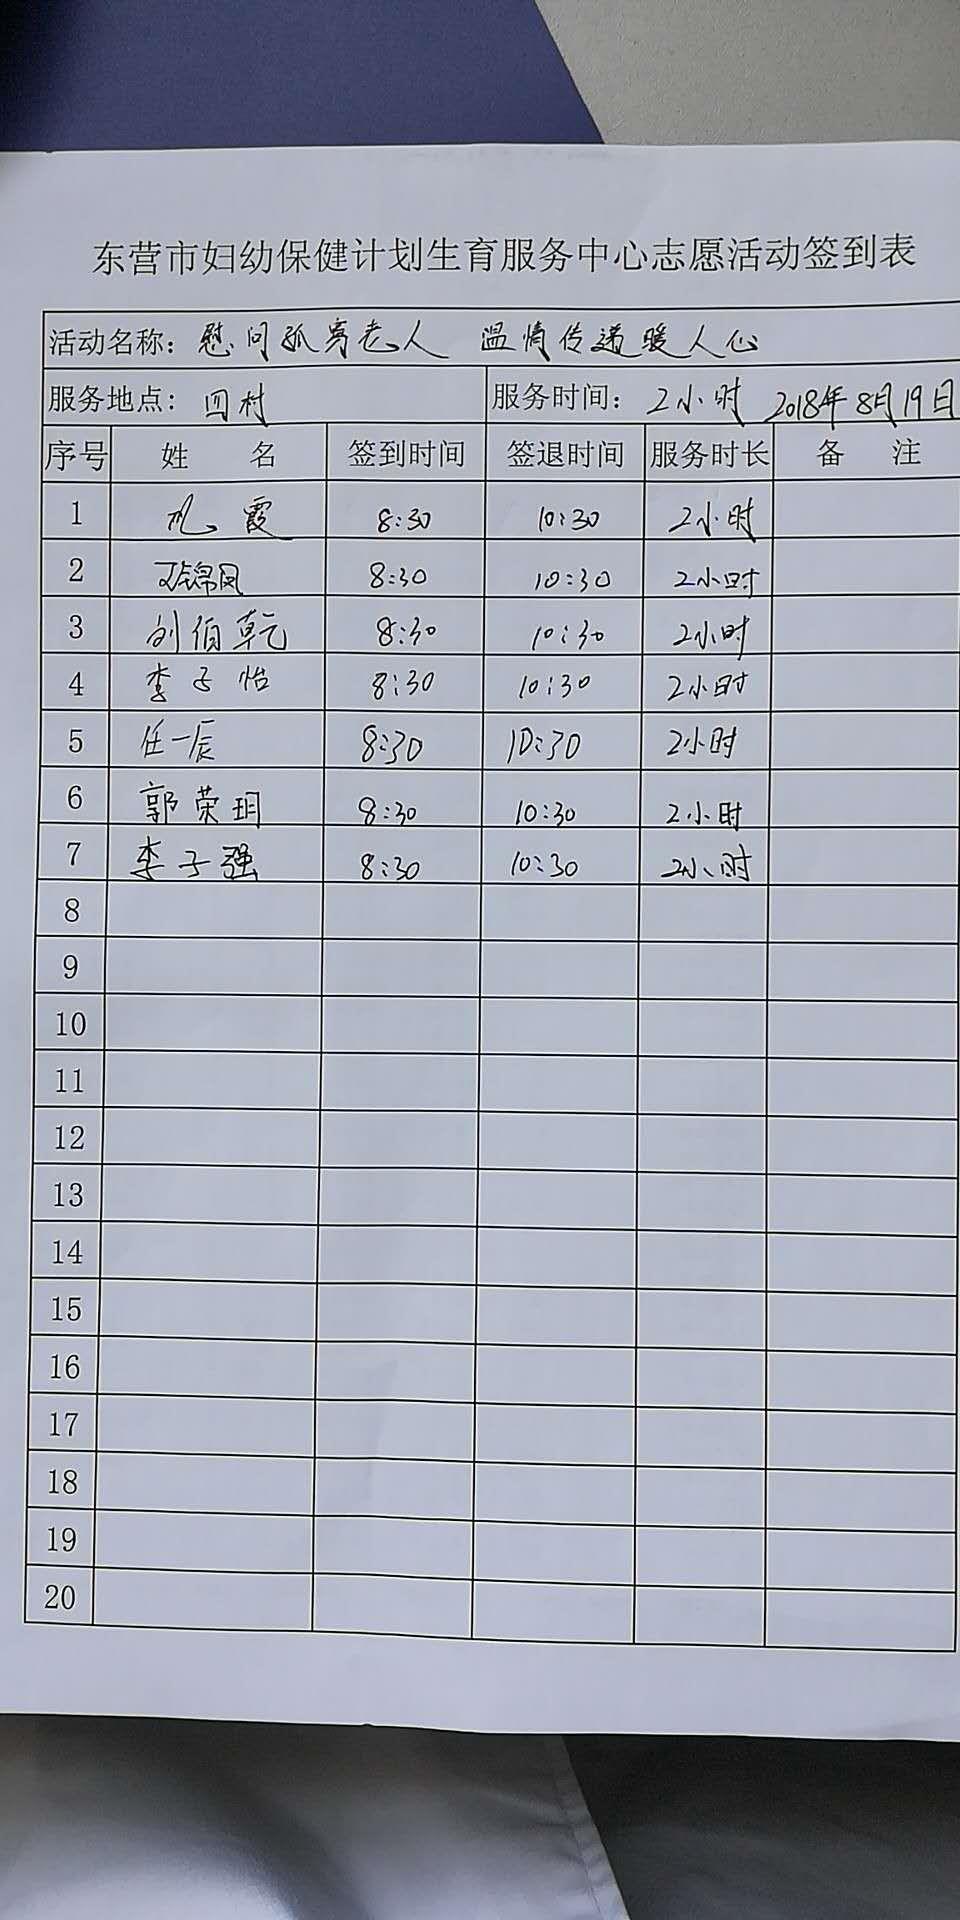 东营市妇幼保健计划生育服务中心志愿活动签到表
活动名称：慰问孤寡老人 温情传递暖人心
服务地点：四村 服务时间：2小时 2018年8月19日
序号 姓 名 签到时间 签退时间 服务时长 备 注
1 霞 8:30 10:30 2小时
2 锦凤 8:30 10:30 2小时
3 刘伯乾 8:30 10:30 2小时
4 李子怡 8:30 10:30 2小时
5 任一辰 8:30 10:30 2小时
6 郭荣玥 8:30 10:30 2小时
7 李子强 8:30 10:30 2小时
8
9
10
11
12
13
14
15
16
17
18
19
20